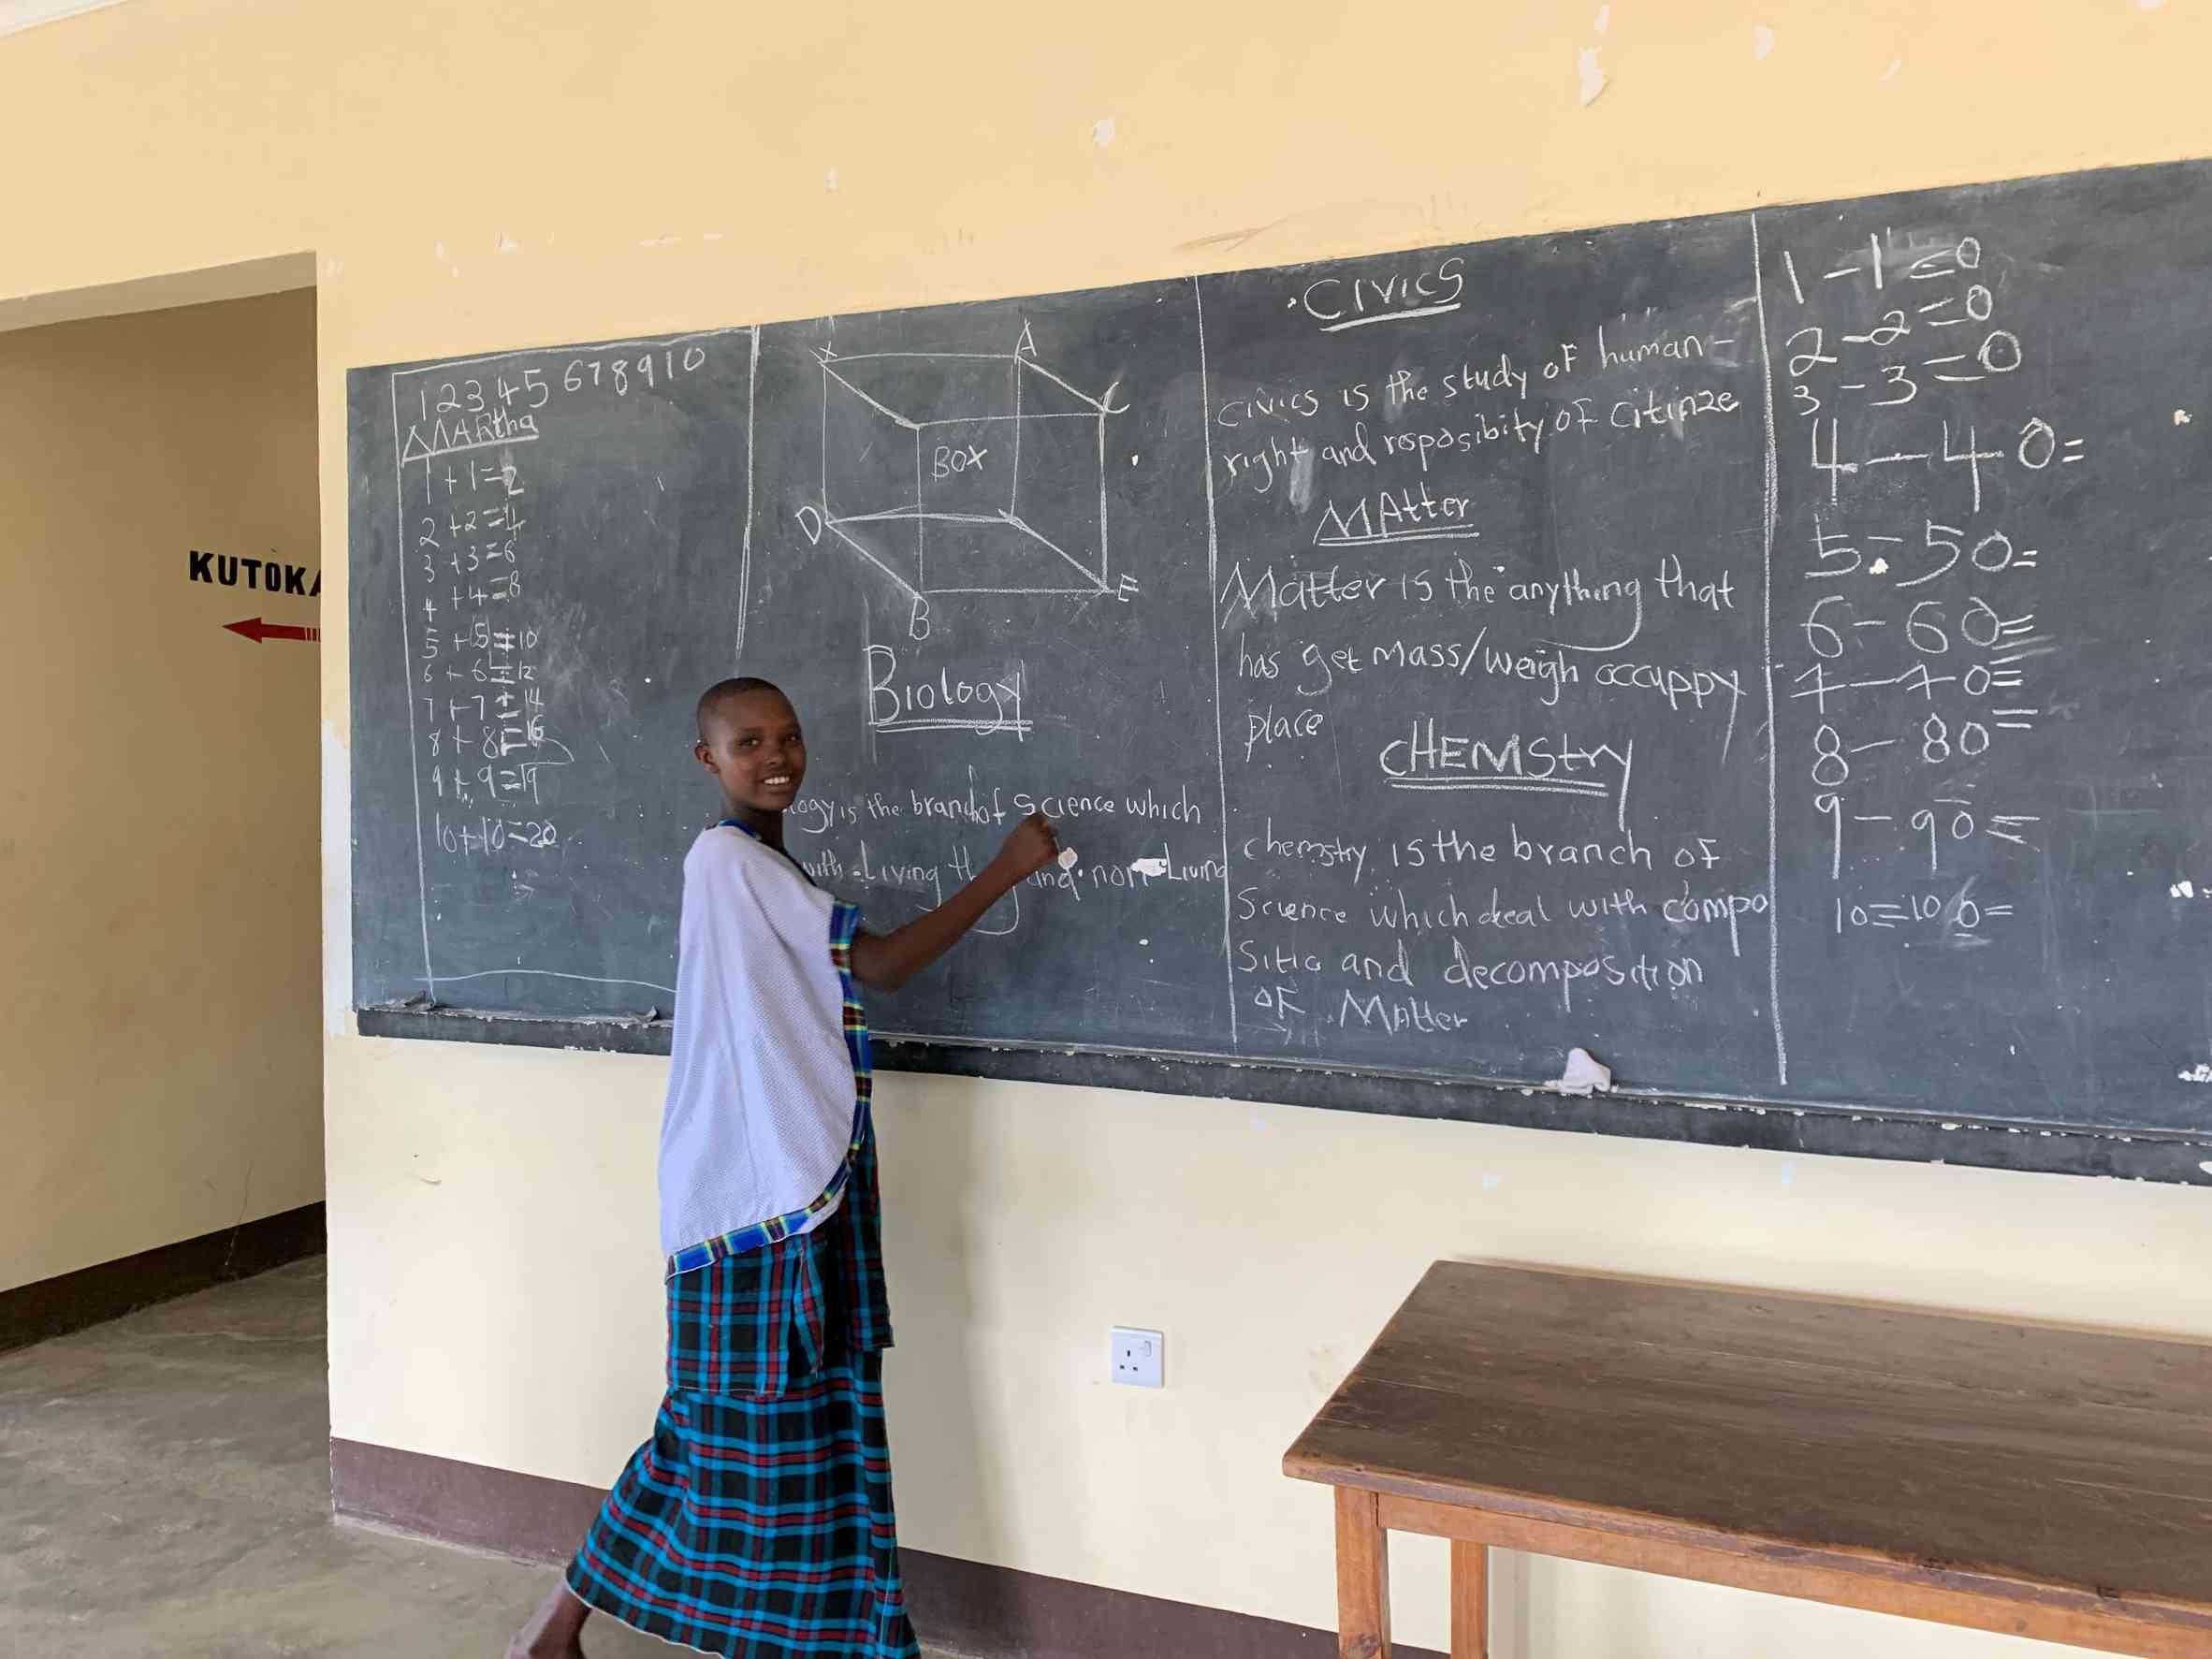 KUTOKA
1 2 3 4 5 6 7 8 9 10
MARtha
1 + 1 = 2
2 + 2 = 4
3 + 3 = 6
4 + 4 = 8
5 + 5 = 10
6 + 6 = 12
7 + 7 = 14
8 + 8 = 16
9 + 9 = 19
10 + 10 = 20
X A
C
BOX
D
E
B
Biology
logy is the branch of science which
with Living and non Living
CIVICS
civics is the study of human -
right and resposibity of citinze
MAtter
Matter is the anything that
has get mass/weigh occuppy
place
CHEMStry
chemstry is the branch of
Science which deal with compo
sitio and decomposition
OF Matter
1 - 1 = 0
2 - 2 = 0
3 - 3 = 0
4 - 4 0 =
5 - 5 0 =
6 - 6 0 =
7 - 7 0 =
8 - 8 0 =
9 - 9 0 =
10 = 10 0 =